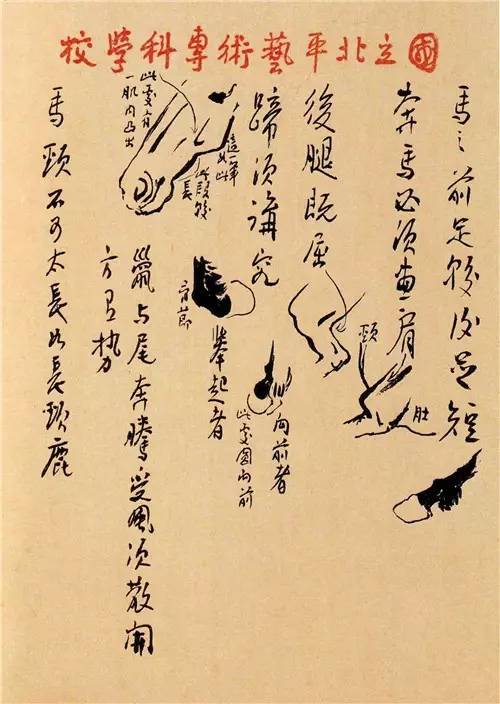 國立北平藝術專科學校
馬之前足較後足短
奔馬必須畫肩
頸
肚
後腿既屈
蹄須講究
向前者
此處圓向前
舉起者
有節
這一筆如此
此段較長
此處有
一肌肉凸出
鬣与尾奔騰受風須散開
方勢
馬頸不可太長如長頸鹿